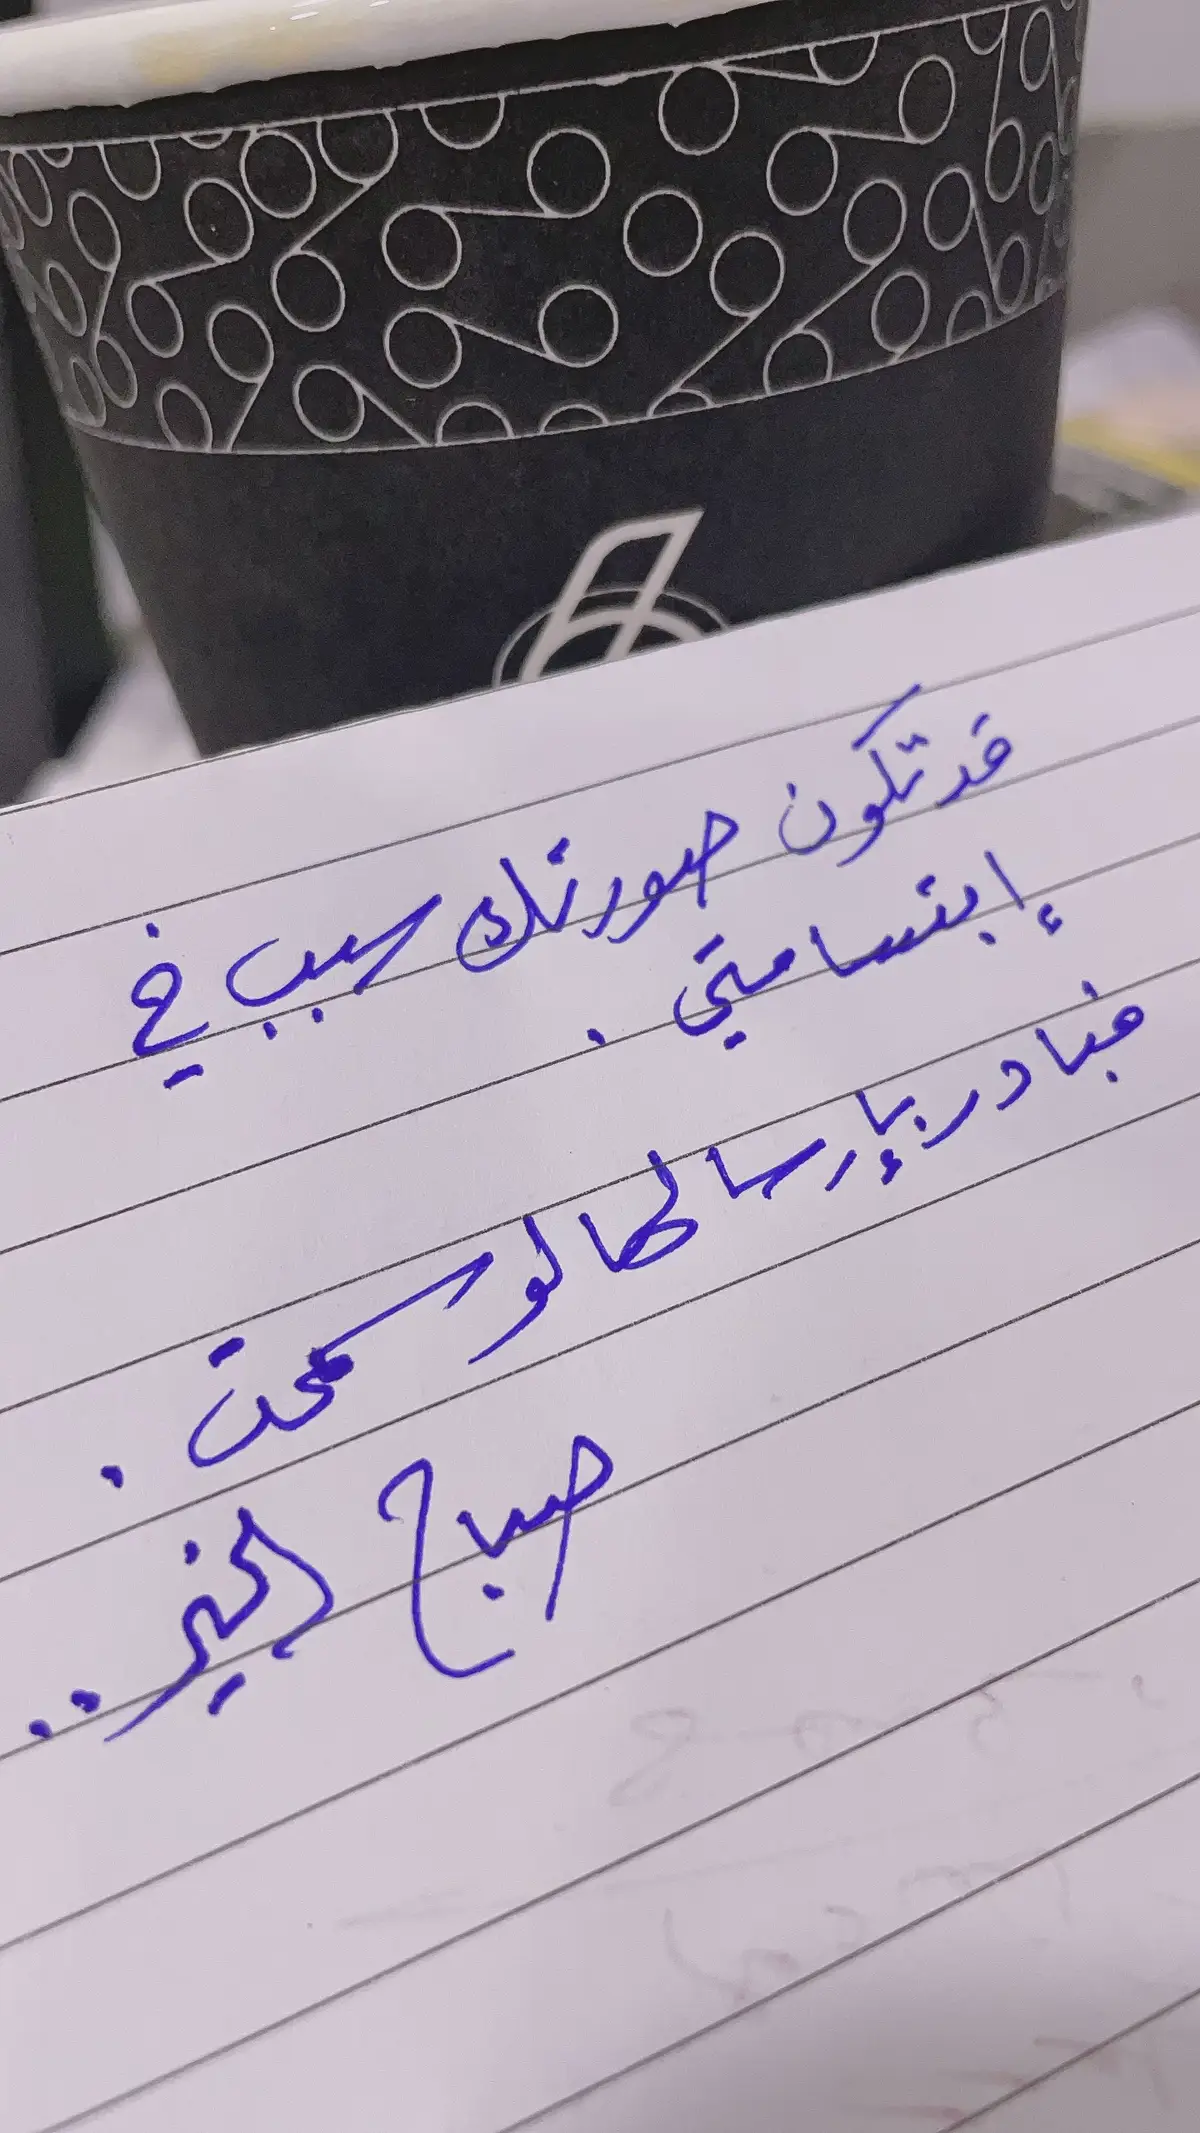 قد تكون صورتك سبب في
إبتسامتي .
فبادر بإرسالها لو سمحت .
صباح الخير ..